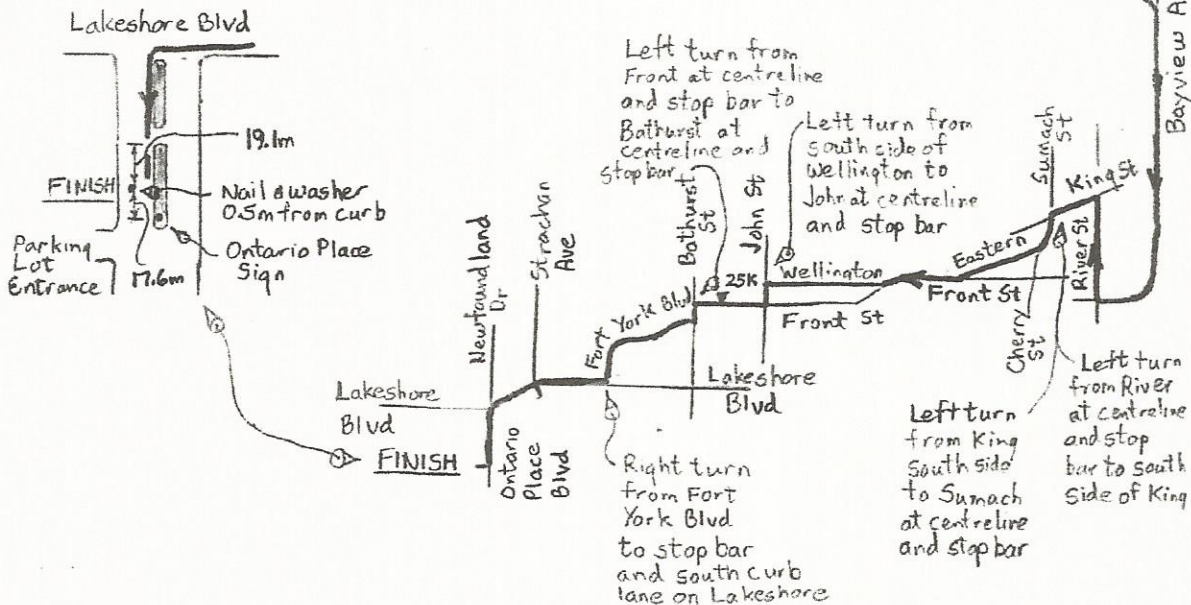 Lakeshore Blvd
19.1m
FINISH
Nail & washer
0.5m from curb
Ontario Place
Sign
Parking
Lot
Entrance
17.6m
Left turn from
Front at centreline
and stop bar to
Bathurst at
centreline and
stop bar
Left turn from
south side of
Wellington to
John at centreline
and stop bar
Bayview A
Sumach
St
King St
River St
Eastern
Cherry
St
Front St
Wellington
John St
Bathurst
St
25K
Front St
Fort York Blvd
Strachan
Ave
Newfoundland
Dr
Lakeshore
Blvd
Lakeshore
Blvd
FINISH
Ontario
Place
Blvd
Right turn
from Fort
York Blvd
to stop bar
and south curb
lane on Lakeshore
Left turn
from King
South side
to Sumach
at centreline
and stop bar
Left turn
from River
at centreline
and stop
bar to south
Side of King